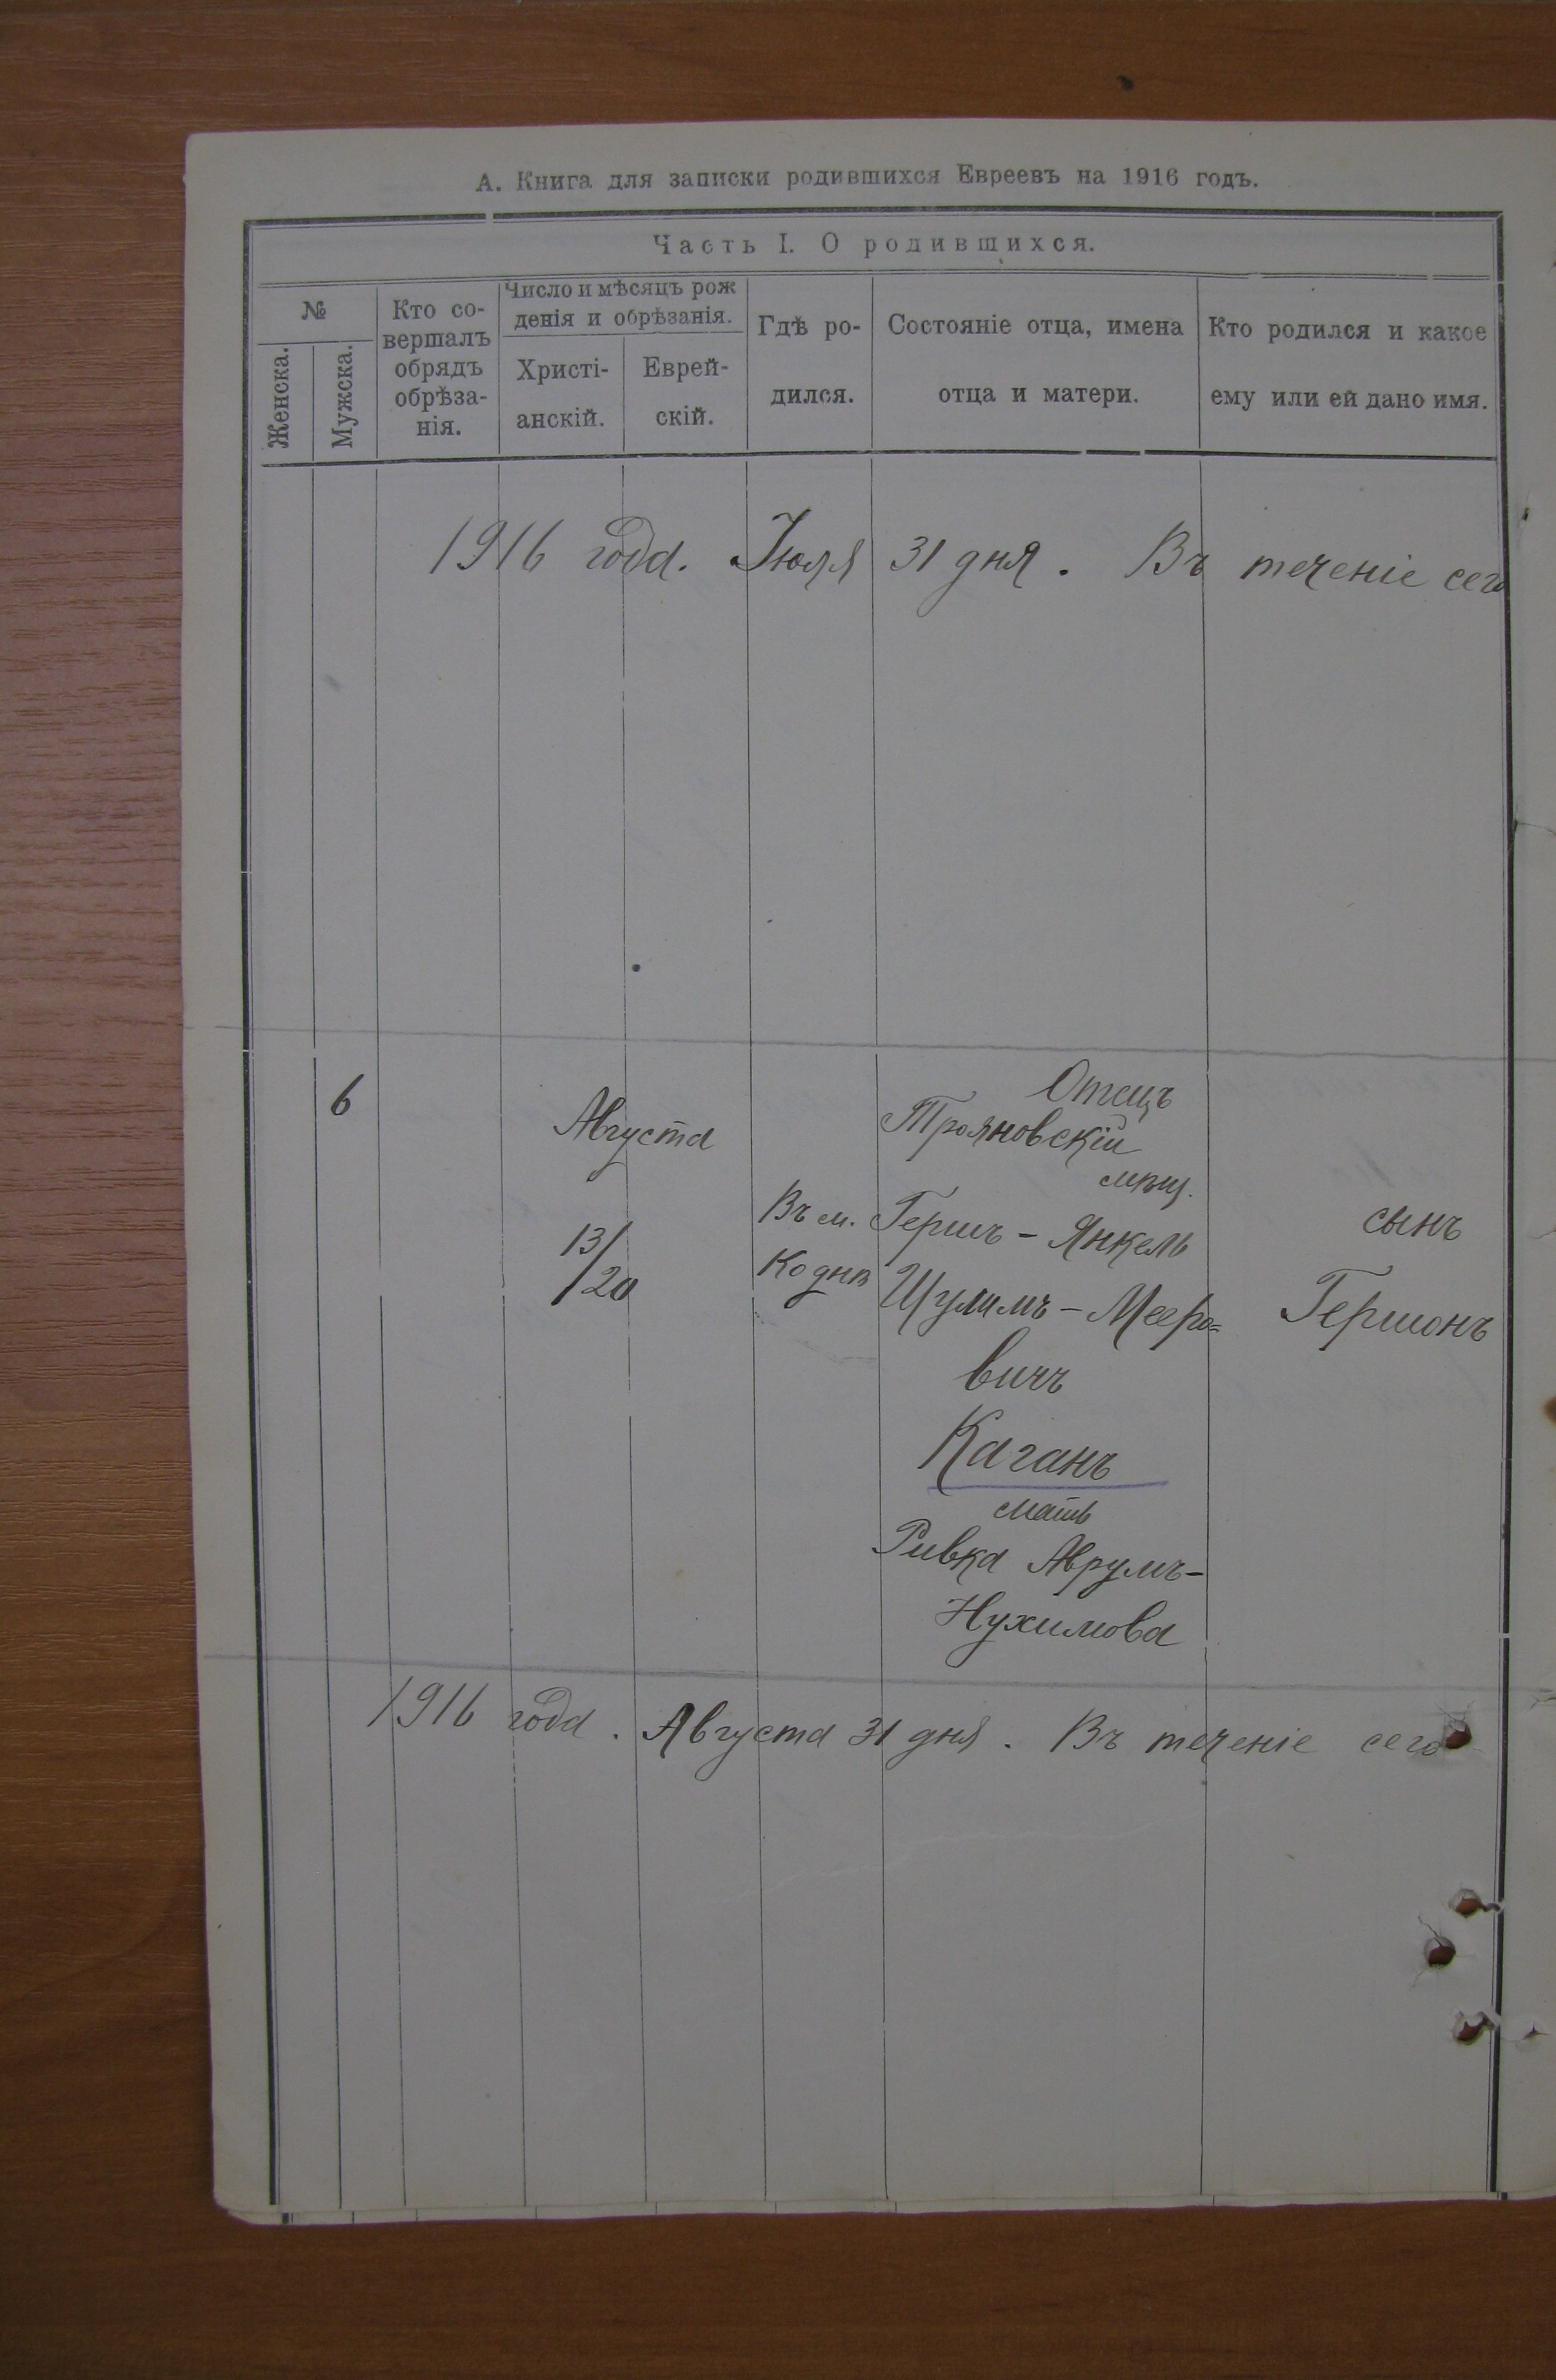 А. Книга для записки родившихся Евреевъ на 1916 годъ.
Часть I. О родившихся.
№
Женска.
Мужска.
Кто со-
вершалъ
обрядъ
обрѣза-
нія.
Число и мѣсяцъ рож
денія и обрѣзанія.
Христі-
анскій.
Еврей-
скій.
Гдѣ ро-
дился.
Состояніе отца, имена
отца и матери.
Кто родился и какое
ему или ей дано имя.
1916 года. Іюля 31 дня. Въ теченіе сего
6
Августа
13/20
Въ м.
Коднѣ
Отецъ
Трояновскій
мѣщ.
Гершъ-Янкель
Шулимъ-Мееро=
вичъ
Каганъ
мать
Ривка Аврумъ-
Нухимова
сынъ
Гершонъ
1916 года. Августа 31 дня. Въ теченіе сего